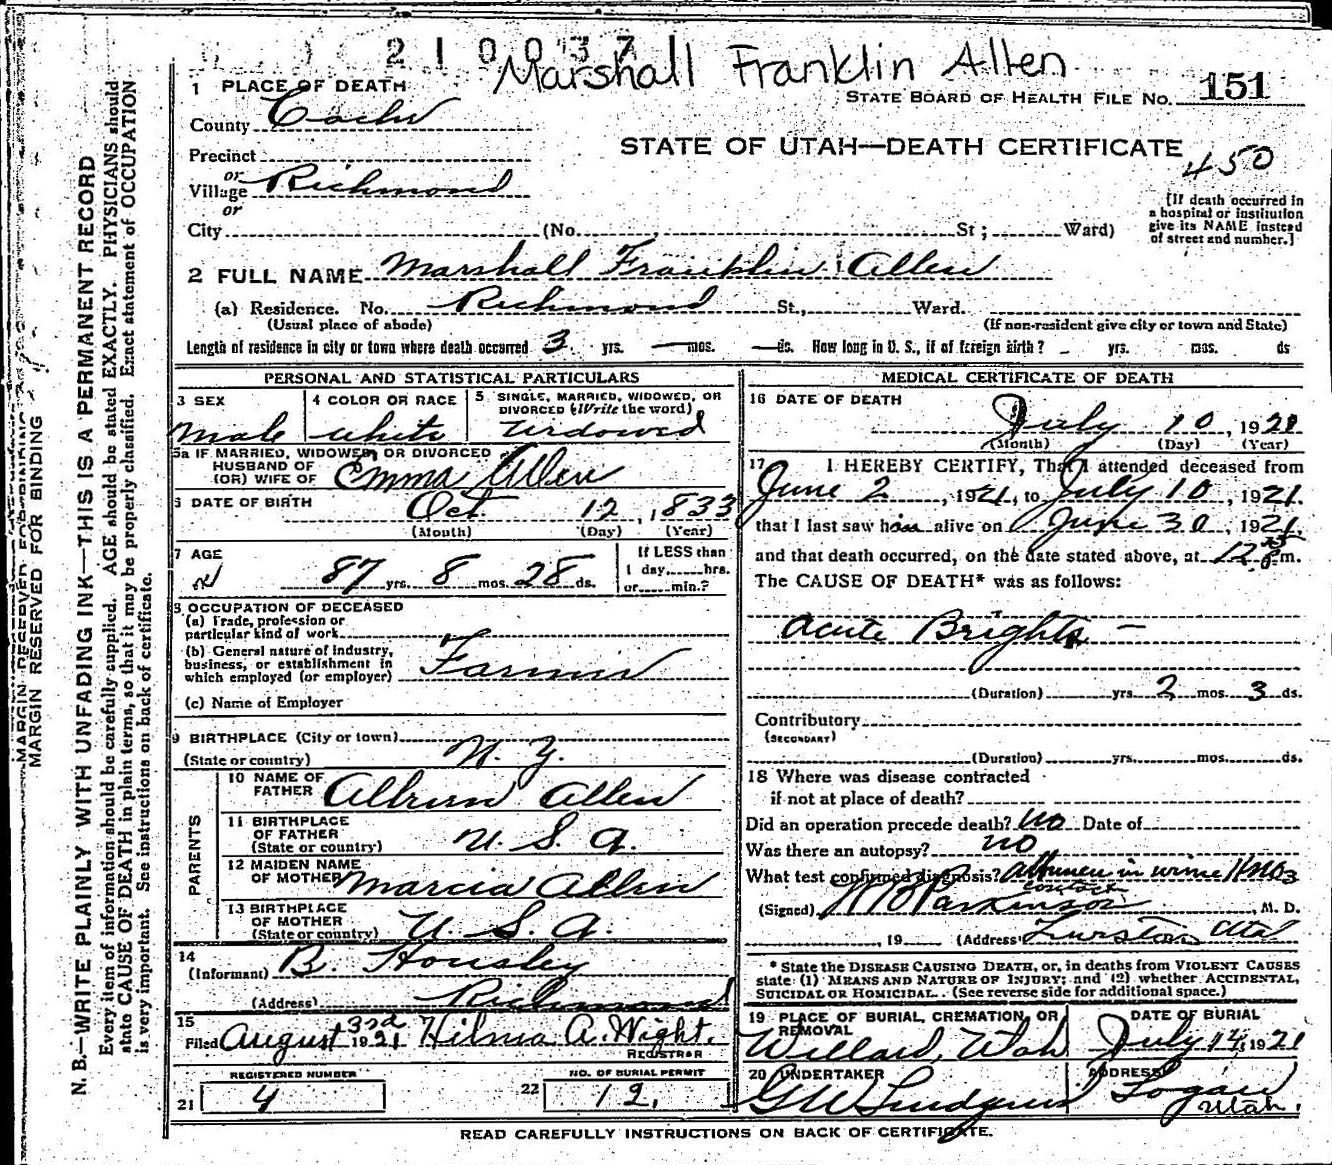 210037
Marshall Franklin Allen
STATE BOARD OF HEALTH FILE NO. 151
1 PLACE OF DEATH
County Cache
STATE OF UTAH—DEATH CERTIFICATE
450
Precinct
or
Village Richmond
or
City (No. St; Ward)
[If death occurred in
a hospital or institution
give its NAME instead
of street and number.]
2 FULL NAME Marshall Franklin Allen
(a) Residence. No. Richmond St., Ward.
(Usual place of abode) (If non-resident give city or town and State)
Length of residence in city or town where death occurred 3 yrs. — mos. — ds. How long in U. S., if of foreign birth? yrs. mos. ds
PERSONAL AND STATISTICAL PARTICULARS
3 SEX
Male
4 COLOR OR RACE
White
5 SINGLE, MARRIED, WIDOWED, OR
DIVORCED (Write the word)
Widowed
5a IF MARRIED, WIDOWED OR DIVORCED
HUSBAND OF
(OR) WIFE OF Emma Allen
6 DATE OF BIRTH Oct. 12, 1833
(Month) (Day) (Year)
7 AGE
87 yrs. 8 mos. 28 ds.
If LESS than
1 day, hrs.
or min.?
8 OCCUPATION OF DECEASED
(a) Trade, profession or
particular kind of work
(b) General nature of industry,
business, or establishment in
which employed (or employer) Farmer
(c) Name of Employer
9 BIRTHPLACE (City or town)
(State or country) N. Y.
PARENTS
10 NAME OF
FATHER Allen
11 BIRTHPLACE
OF FATHER
(State or country) U. S. A.
12 MAIDEN NAME
OF MOTHER Marcia Allen
13 BIRTHPLACE
OF MOTHER
(State or country) U. S. A.
14
(Informant) B. Housley
(Address) Richmond
15
Filed August 3rd 1921 Hilma A. Wight.
REGISTRAR
REGISTERED NUMBER
21 4
NO. OF BURIAL PERMIT
22 12.
MEDICAL CERTIFICATE OF DEATH
16 DATE OF DEATH
July 10, 1921
(Month) (Day) (Year)
17 I HEREBY CERTIFY, That I attended deceased from
June 2, 1921, to July 10, 1921.
that I last saw him alive on June 30, 1921
and that death occurred, on the date stated above, at 12 m.
The CAUSE OF DEATH* was as follows:
Acute Brights —
(Duration) yrs. 2 mos. 3 ds.
Contributory
(SECONDARY)
(Duration) yrs. mos. ds.
18 Where was disease contracted
if not at place of death?
Did an operation precede death? No Date of
Was there an autopsy? No
What test confirmed diagnosis? Albumen in urine
(Signed) W B Parkinson, M. D.
, 19 (Address)
* State the DISEASE CAUSING DEATH, or, in deaths from VIOLENT CAUSES
state (1) MEANS AND NATURE OF INJURY; and (2) whether ACCIDENTAL,
SUICIDAL OR HOMICIDAL. (See reverse side for additional space.)
19 PLACE OF BURIAL, CREMATION, OR
REMOVAL
Willard, Utah
DATE OF BURIAL
July 14, 1921
20 UNDERTAKER
G W Lindquist
ADDRESS
Logan
Utah.
READ CAREFULLY INSTRUCTIONS ON BACK OF CERTIFICATE.
MARGIN RESERVED FOR BINDING
MARGIN RESERVED FOR BINDING
N. B.—WRITE PLAINLY WITH UNFADING INK—THIS IS A PERMANENT RECORD
Every item of information should be carefully supplied. AGE should be stated EXACTLY. PHYSICIANS should
state CAUSE OF DEATH in plain terms, so that it may be properly classified. Exact statement of OCCUPATION
is very important. See instructions on back of certificate.